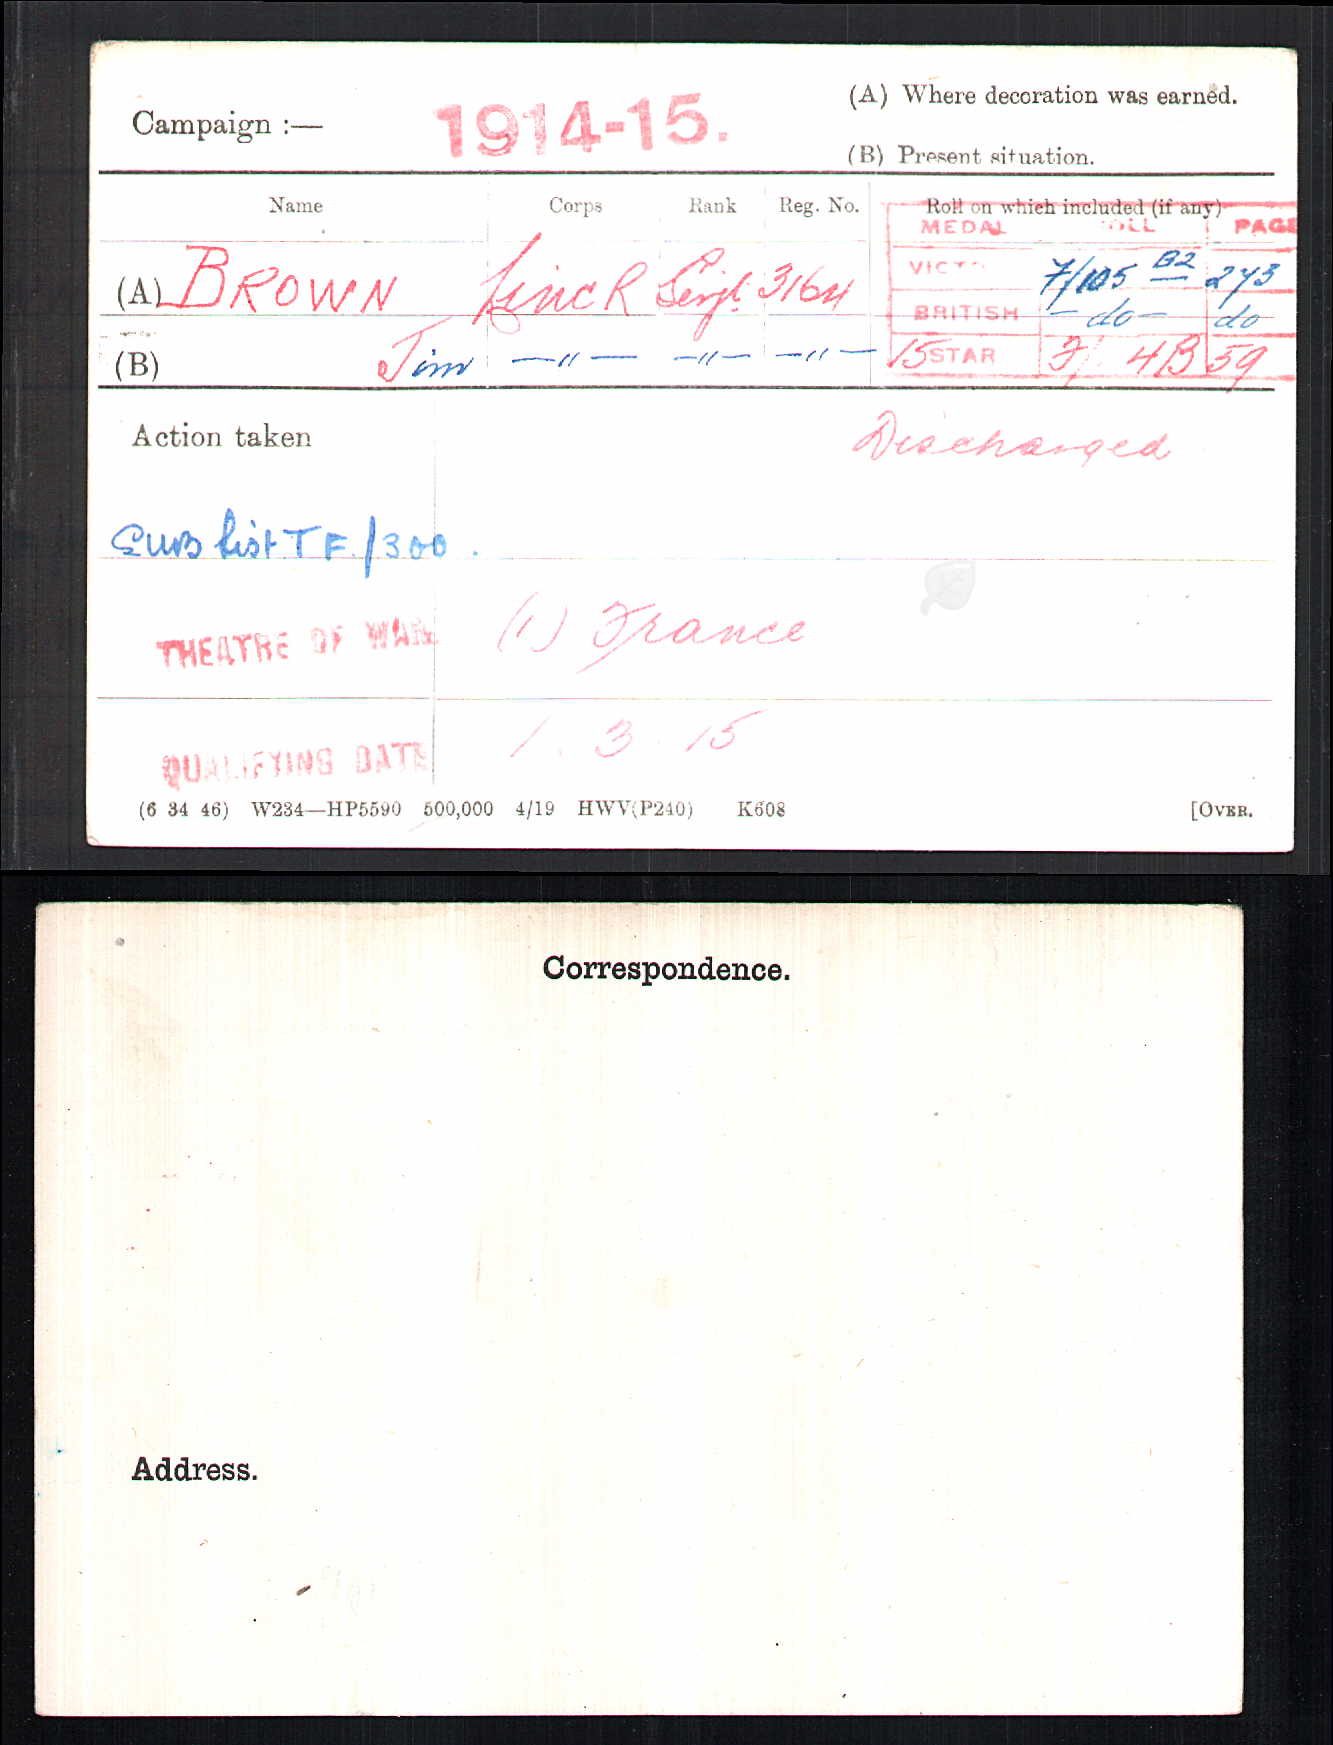 Campaign :— 1914-15. (A) Where decoration was earned.
(B) Present situation.
Name Corps Rank Reg. No. Roll on which included (if any)
MEDAL ROLL PAGE
(A) BROWN Linc R Serjt 3164 VICTO 7/105 B2 243
BRITISH - do - do
(B) Jim —"— —"— —"— 15 STAR 7/ 4B 59
Action taken Discharged
SWB List T F /300.
THEATRE OF WAR (1) France
QUALIFYING DATE 1. 3. 15
(6 34 46) W234—HP5590 500,000 4/19 HWV(P240) K608 [OVER.
Correspondence.
Address.